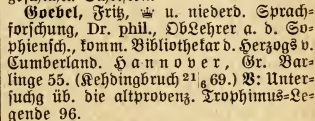 Goebel, Fritz, u. niederd. Sprach-
forschung, Dr. phil., ObLehrer a. d. So-
phiensch., komm. Bibliothekar d. Herzogs v.
Cumberland. Hannover, Gr. Bar-
linge 55. (Kehdingbruch 21|6 69.) V: Unter-
suchg üb. die altprovenz. Trophimus-Le-
gende 96.